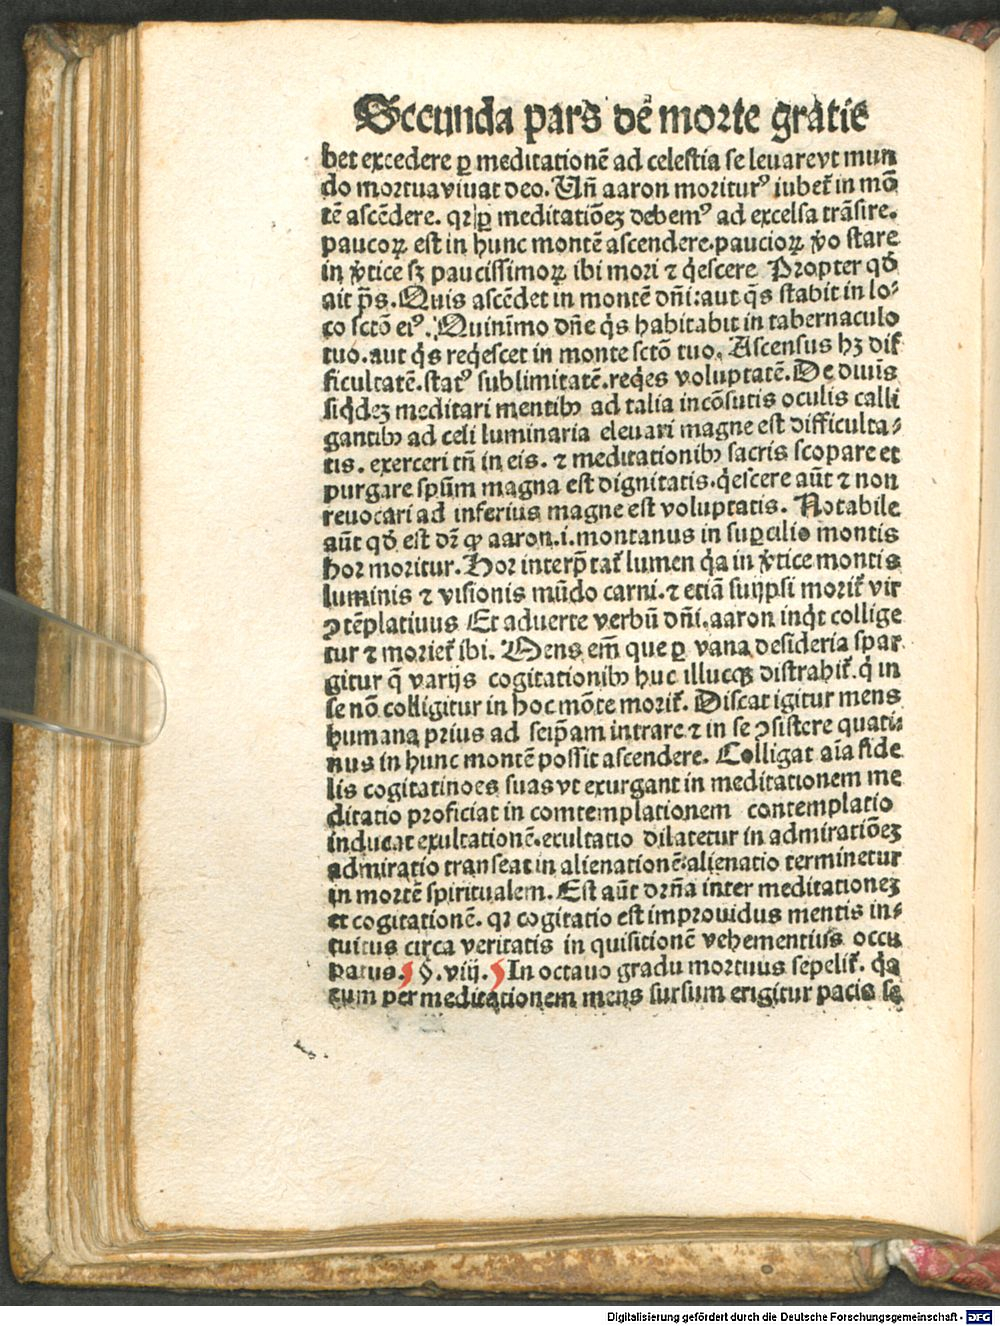 Secunda pars de morte gratie
bet excedere ꝑ meditationē ad celestia se leuare vt mun
do mortua viuat deo. Uñ aaron moriturꝰ iubet᷑ in mō
tē ascēdere. qꝛ ꝑ meditatiōeꝫ debemꝰ ad excelsa trāsire.
paucoꝝ est in hunc montē ascendere. paucioꝝ v̊o stare
in v̊tice sꝫ paucissimoꝝ ibi mori ⁊ q̇escere Propter qđ
ait p̄s. Quis ascēdet in montē dñi: aut q̇s stabit in lo⸗
co sctō eiꝰ. Quinīmo dñe q̇s habitabit in tabernaculo
tuo. aut q̇s req̇escet in monte sctō tuo. Ascensus hꝫ dif
ficultatē. statꝰ sublimitatē. req̇es voluptatē. De diuīs
siq̇deꝫ meditari mentibꝰ ad talia incōsutis oculis calli
gantibꝰ ad celi luminaria eleuari magne est difficulta⸗
tis. exerceri tñ in eis. ⁊ meditationibꝰ sacris scopare et
purgare spūm magna est dignitatis. q̇escere aūt ⁊ non
reuocari ad inferius magne est voluptatis. Notabile
aūt qđ est dꝛ̄ ꝙ aaron .i. montanus in suꝑcilio montis
hor moritur. Hor interp̄tat᷑ lumen q̇a in v̊tice montis
luminis ⁊ visionis mūdo carni. ⁊ etiā suijpsi morit᷑ vir
ꝯtēplatiuus Et aduerte verbū dñi. aaron inq̇t collige
tur ⁊ moriet᷑ ibi. Mens em̄ que ꝑ vana desideria spar
gitur q̄ varijs cogitationibꝰ huc illucqꝫ distrahit᷑. q̇ in
se nō colligitur in hoc mōte morit᷑. Discat igitur mens
humana prius ad seip̄am intrare ⁊ in se ꝯsistere quati⸗
nus in hunc montē possit ascendere. Colligat aīa fide
lis cogitatinoes suas vt exurgant in meditationem me
ditatio proficiat in comtemplationem contemplatio
inducat exultationē. ecultatio dilatetur in admiratiōeꝫ
admiratio transeat in alienationē. alienatio terminetur
in mortē spiritualem. Est aūt dꝛ̄ña inter meditationeꝫ
et cogitationē. qꝛ cogitatio est improuidus mentis in⸗
tuitus circa veritatis in quisitionē vehementius occu
patus. §. viij. In octauo gradu mortuus sepelit᷑. q̇a
cum per meditationem mens sursum erigitur pacis se
Digitalisierung gefördert durch die Deutsche Forschungsgemeinschaft - DFG